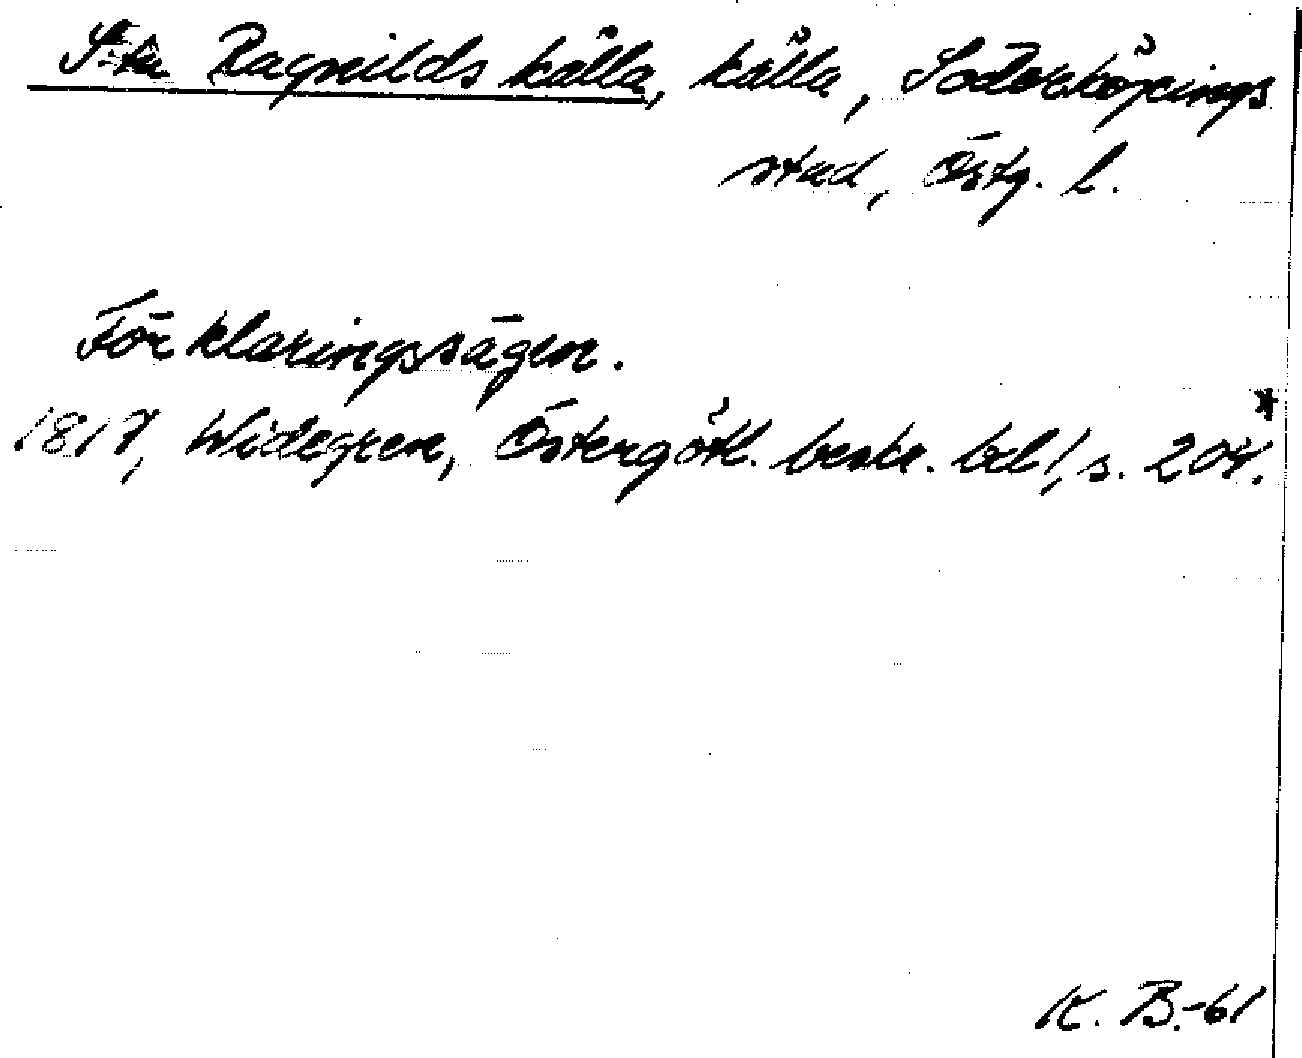 S:ta Ragnilds källa, källa, Söderköpings
stad, Östg. l.
Förklaringssägen.
1817, Widegren, Östergötl. beskr. bd 1, s. 204.*
K. B.-61